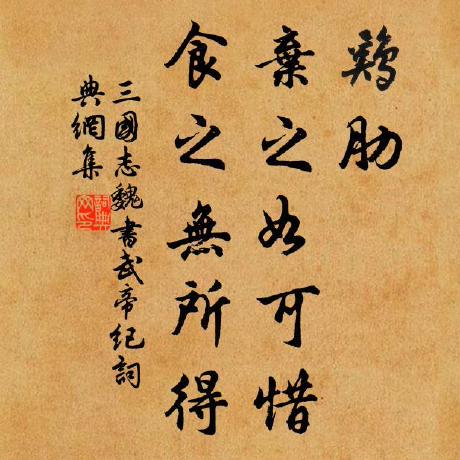 鷄肋
棄之如可惜
食之無所得
三國志魏書武帝紀詞
典網集
詞典網印